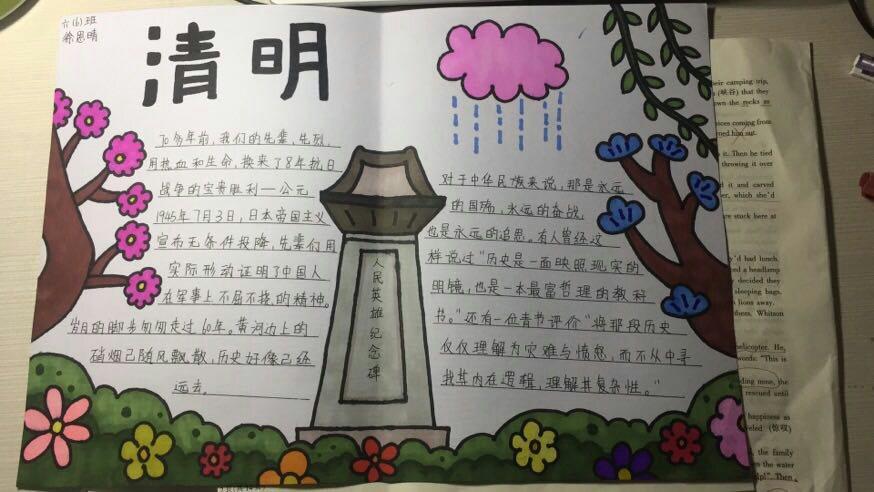 六(6)班
徐思晴
清明
70多年前,我们的先辈,先烈,
用热血和生命,换来了8年抗日
战争的宝贵胜利一公元
1945年7月3日,日本帝国主义
宣布无条件投降,先辈们用
实际形动证明了中国人
在军事上不屈不挠的精神。
岁月的脚步匆匆走过60年。黄河边上的
硝烟已随风飘散,历史好像已经
远去。
人民英雄纪念碑
对于中华民族来说,那是永远
的国殇,永远的奋战,
也是永远的追思。有人曾经这
样说过"历史是一面映照现实的
眼镜,也是一本最富哲理的教科
书。"还有一位青节评价"将那段历史
仅仅理解为灾难与愤怒,而不从中寻
找其内在逻辑,理解其复杂性。"
their camping trip,
(峡谷) that they
down the rocks as
voices coming from
med him out.
it. Then he tied
throwing it over
d it and carved
er, which she'd
ere stuck here at
y'd had lunch.
ed a headlamp
y decided they
sleeping bags,
lions away.
them. Whitson
helicopter. He,
words: "This is
ding mine, the
rescued until
happiness as
veled (惊叹)
, the family
n the water
lp!". Then